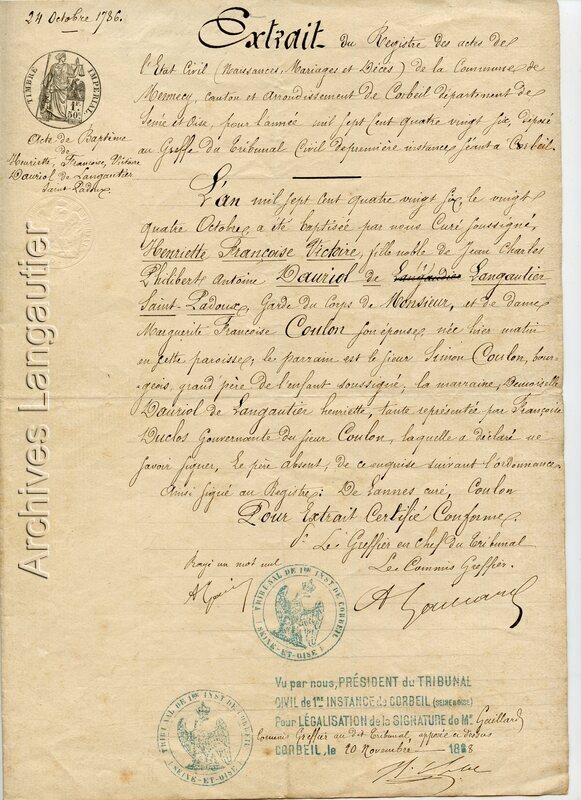 24 Octobre 1786.
TIMBRE IMPERIAL
1F 50C
Acte de Baptême
de
Henriette, Françoise, Victoire
Dauriol de Langautier
Saint Padoux
Extrait du Registre des actes de
l'Etat Civil (Naissances, Mariages et Décès) de la Commune de
Mennecy, canton et arrondissement de Corbeil département de
Seine et Oise, pour l'année mil sept cent quatre vingt six, déposé
au Greffe du Tribunal Civil de première instance séant à Corbeil.
L'an mil sept cent quatre vingt six, le vingt
quatre Octobre, a été baptisée par nous Curé soussigné,
Henriette Françoise Victoire, fille noble de Jean Charles
Philibert Antoine Dauriol de Langautier
Saint-Padoux, Garde du Corps de Monsieur, et de dame
Marguerite Françoise Coulon son épouse, née hier matin
en cette paroisse; le parrain est le sieur Simon Coulon, bour-
geois, grand père de l'enfant soussigné, la marraine, Demoiselle
Dauriol de Langautier henriette, tante représentée par Françoise
Duclos Gouvernante du sieur Coulon, laquelle a déclaré ne
savoir signer, Le père absent, de ce enquise suivant l'ordonnance.
Ainsi signé au Registre: De Lannes curé, Coulon
Pour Extrait Certifié Conforme.
Pr Le Greffier en chef du Tribunal
Rayé un mot nul
Le Commis Greffier.
TRIBUNAL DE 1RE INST DE CORBEIL
SEINE-ET-OISE
Vu par nous, PRÉSIDENT du TRIBUNAL
CIVIL de 1RE INSTANCE de CORBEIL (SEINE & OISE)
Pour LÉGALISATION de la SIGNATURE de Mr Gaillard
Commis Greffier au dit Tribunal, apposée ci dessus
CORBEIL, le 20 Novembre 18
TRIBUNAL DE 1RE INST DE CORBEIL
SEINE-ET-OISE
Archives Langautier